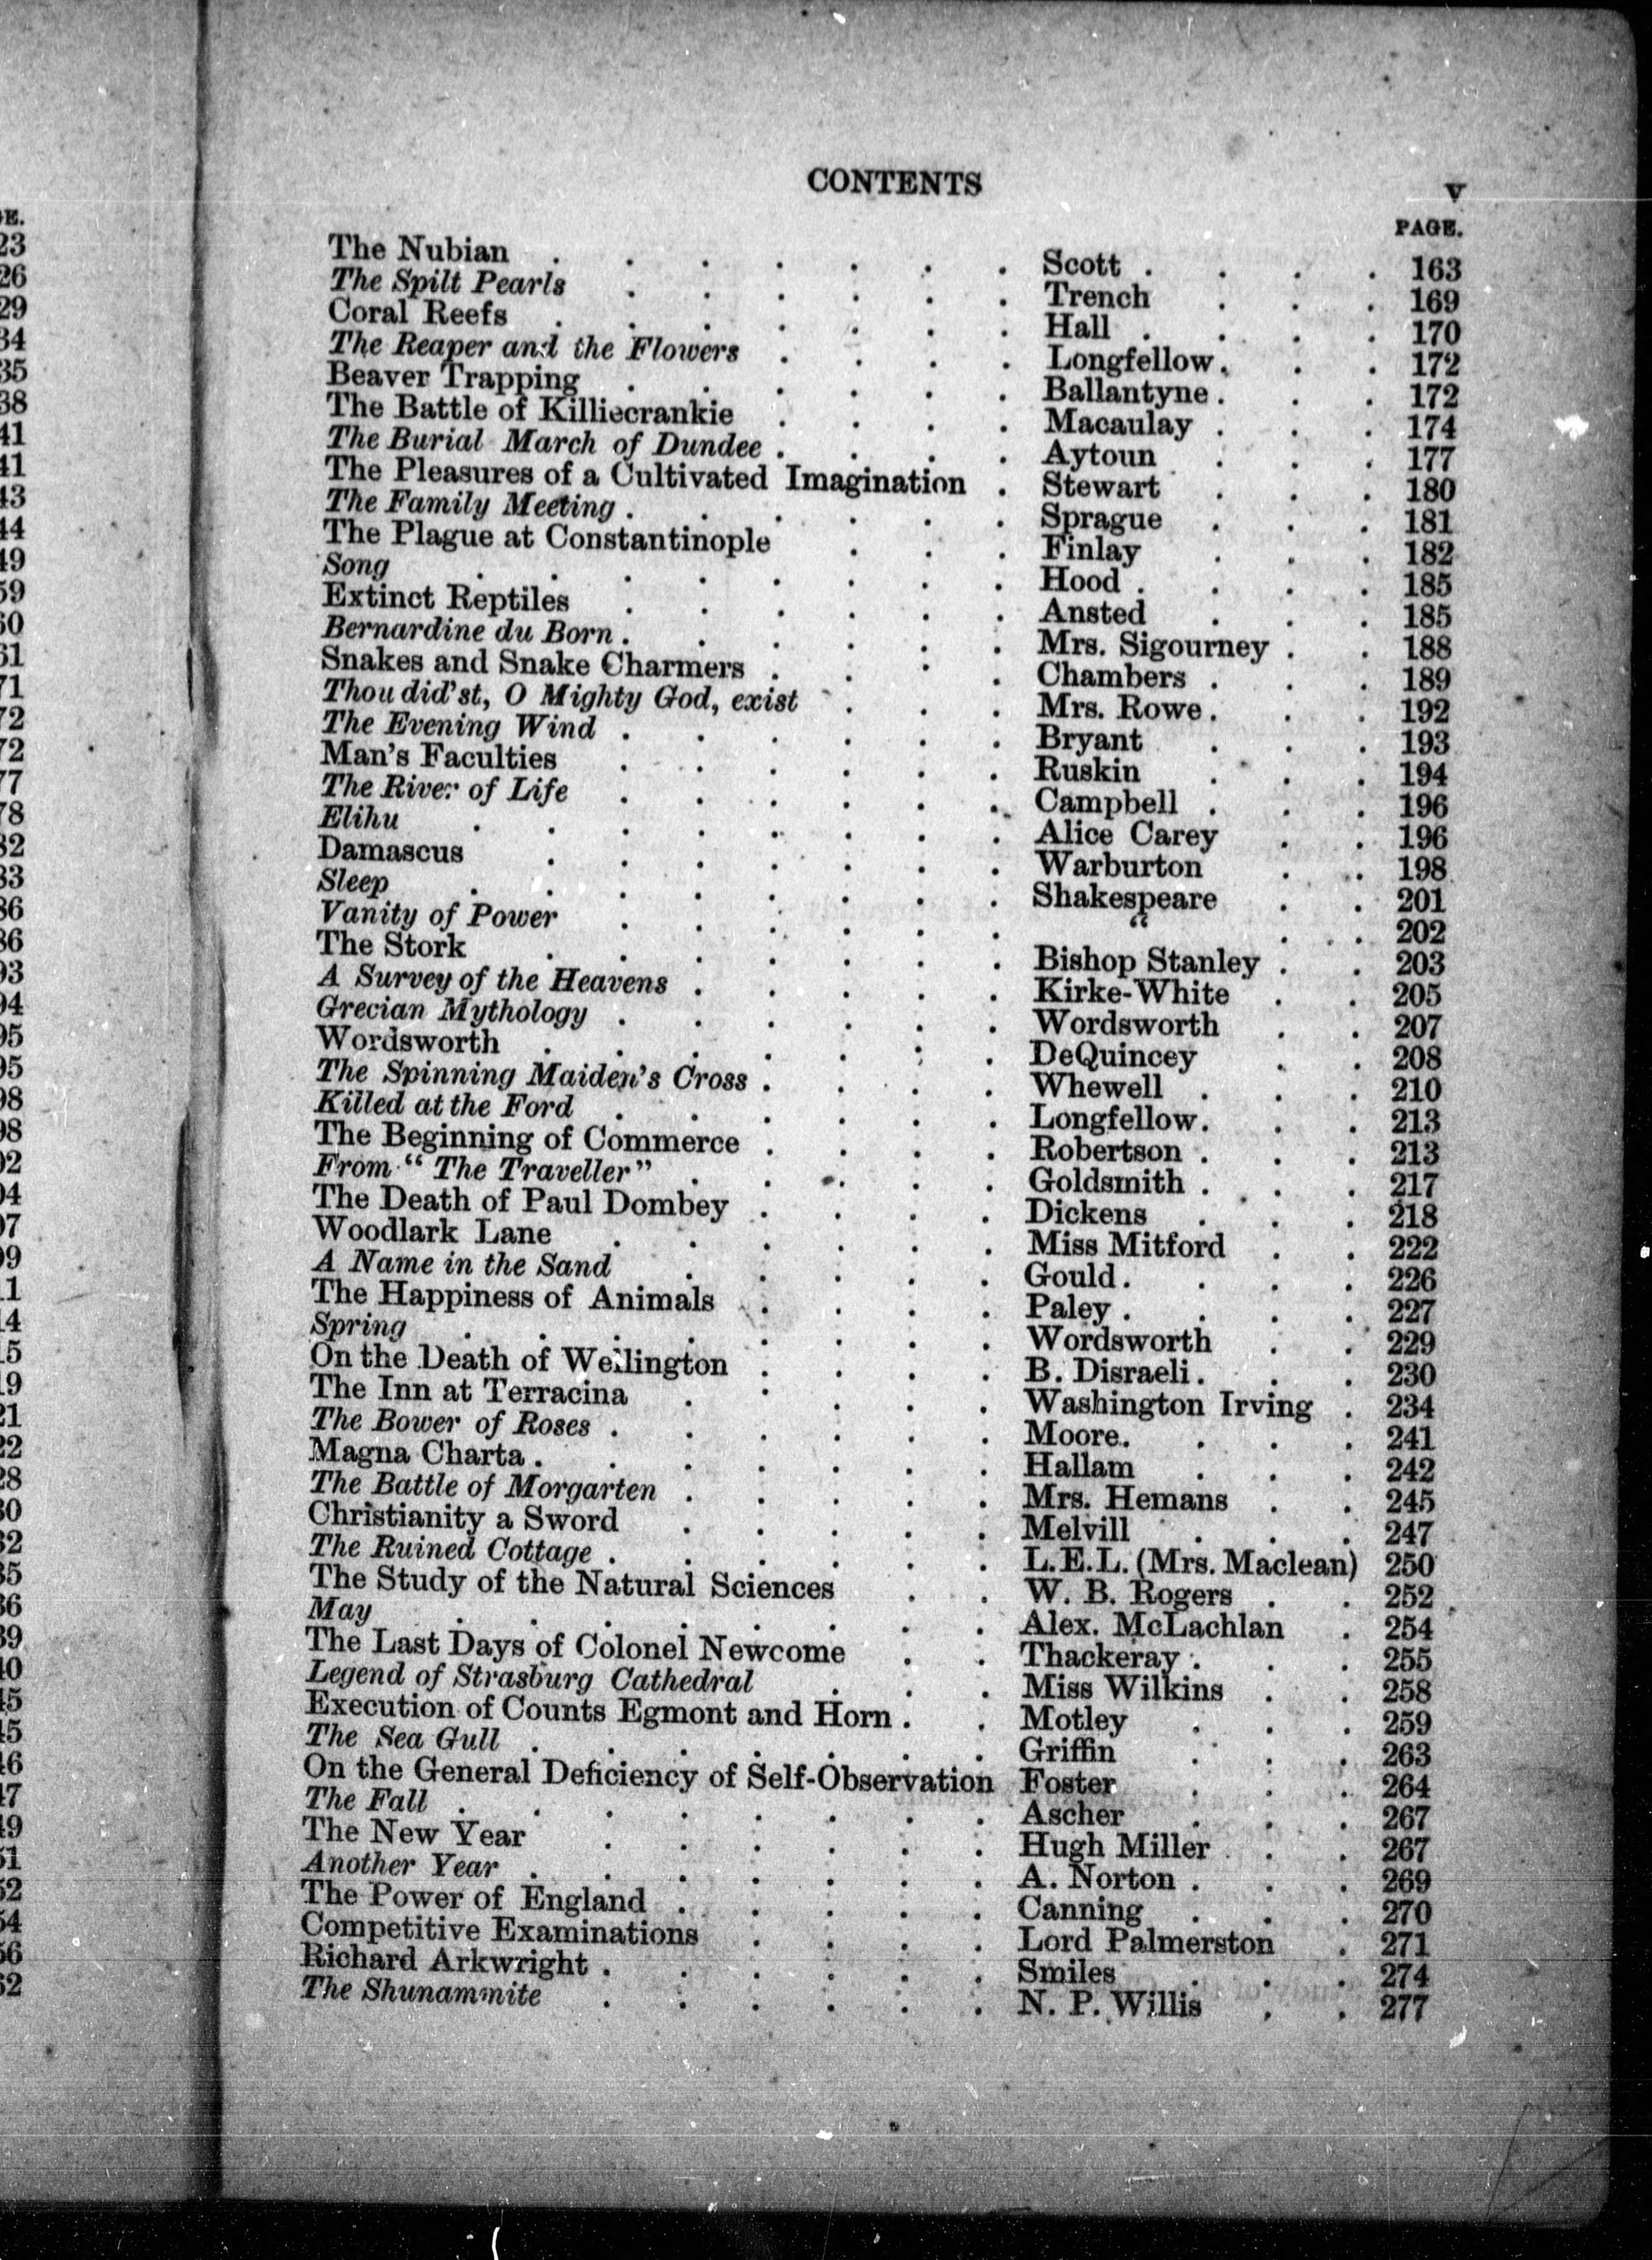 CONTENTS v
PAGE.
The Nubian . . . . . . . Scott . . . . 163
The Spilt Pearls . . . . . . Trench . . . 169
Coral Reefs . . . . . . . Hall . . . . 170
The Reaper and the Flowers . . . . Longfellow . . . 172
Beaver Trapping . . . . . . Ballantyne . . . 172
The Battle of Killiecrankie . . . . Macaulay . . . 174
The Burial March of Dundee . . . . Aytoun . . . 177
The Pleasures of a Cultivated Imagination . Stewart . . . 180
The Family Meeting . . . . . . Sprague . . . 181
The Plague at Constantinople . . . Finlay . . . 182
Song . . . . . . . . Hood . . . . 185
Extinct Reptiles . . . . . . Ansted . . . 185
Bernardine du Born . . . . . . Mrs. Sigourney . . 188
Snakes and Snake Charmers . . . . Chambers . . . 189
Thou did'st, O Mighty God, exist . . . Mrs. Rowe . . . 192
The Evening Wind . . . . . . Bryant . . . 193
Man's Faculties . . . . . . Ruskin . . . 194
The River of Life . . . . . . Campbell . . . 196
Elihu . . . . . . . . Alice Carey . . 196
Damascus . . . . . . . Warburton . . 198
Sleep . . . . . . . . Shakespeare . . 201
Vanity of Power . . . . . . “ . . 202
The Stork . . . . . . . Bishop Stanley . . 203
A Survey of the Heavens . . . . . Kirke-White . . 205
Grecian Mythology . . . . . . Wordsworth . . 207
Wordsworth . . . . . . . DeQuincey . . 208
The Spinning Maiden's Cross . . . . Whewell . . . 210
Killed at the Ford . . . . . . Longfellow . . . 213
The Beginning of Commerce . . . . Robertson . . . 213
From “The Traveller” . . . . . Goldsmith . . . 217
The Death of Paul Dombey . . . . Dickens . . . 218
Woodlark Lane . . . . . . Miss Mitford . . 222
A Name in the Sand . . . . . Gould . . . . 226
The Happiness of Animals . . . . Paley . . . . 227
Spring . . . . . . . . Wordsworth . . 229
On the Death of Wellington . . . . B. Disraeli . . . 230
The Inn at Terracina . . . . . Washington Irving . 234
The Bower of Roses . . . . . . Moore . . . . 241
Magna Charta . . . . . . . Hallam . . . 242
The Battle of Morgarten . . . . . Mrs. Hemans . . 245
Christianity a Sword . . . . . Melvill . . . 247
The Ruined Cottage . . . . . . L.E.L. (Mrs. Maclean) 250
The Study of the Natural Sciences . . W. B. Rogers . . 252
May . . . . . . . . Alex. McLachlan . 254
The Last Days of Colonel Newcome . . Thackeray . . . 255
Legend of Strasburg Cathedral . . . Miss Wilkins . . 258
Execution of Counts Egmont and Horn . . Motley . . . 259
The Sea Gull . . . . . . . Griffin . . . 263
On the General Deficiency of Self-Observation Foster . . . 264
The Fall . . . . . . . . Ascher . . . 267
The New Year . . . . . . Hugh Miller . . 267
Another Year . . . . . . . A. Norton . . . 269
The Power of England . . . . . Canning . . . 270
Competitive Examinations . . . . Lord Palmerston . 271
Richard Arkwright . . . . . . Smiles . . . 274
The Shunammite . . . . . . N. P. Willis . . 277